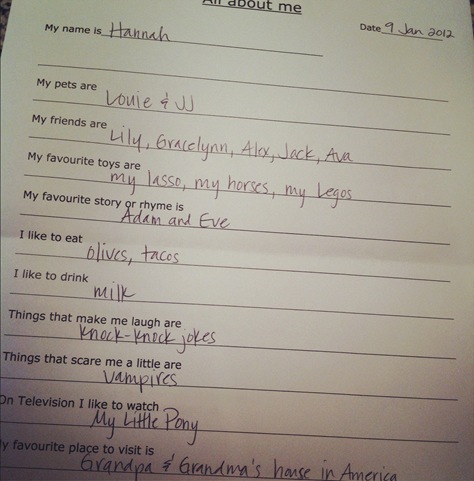 All about me
My name is Hannah
Date 9 Jan 2012
My pets are
Louie & JJ
My friends are
Lily, Gracelynn, Alex, Jack, Ava
My favourite toys are
my lasso, my horses, my Legos
My favourite story or rhyme is
Adam and Eve
I like to eat
olives, tacos
I like to drink
milk
Things that make me laugh are
knock-knock jokes
Things that scare me a little are
vampires
On Television I like to watch
My Little Pony
My favourite place to visit is
Grandpa & Grandma's house in America